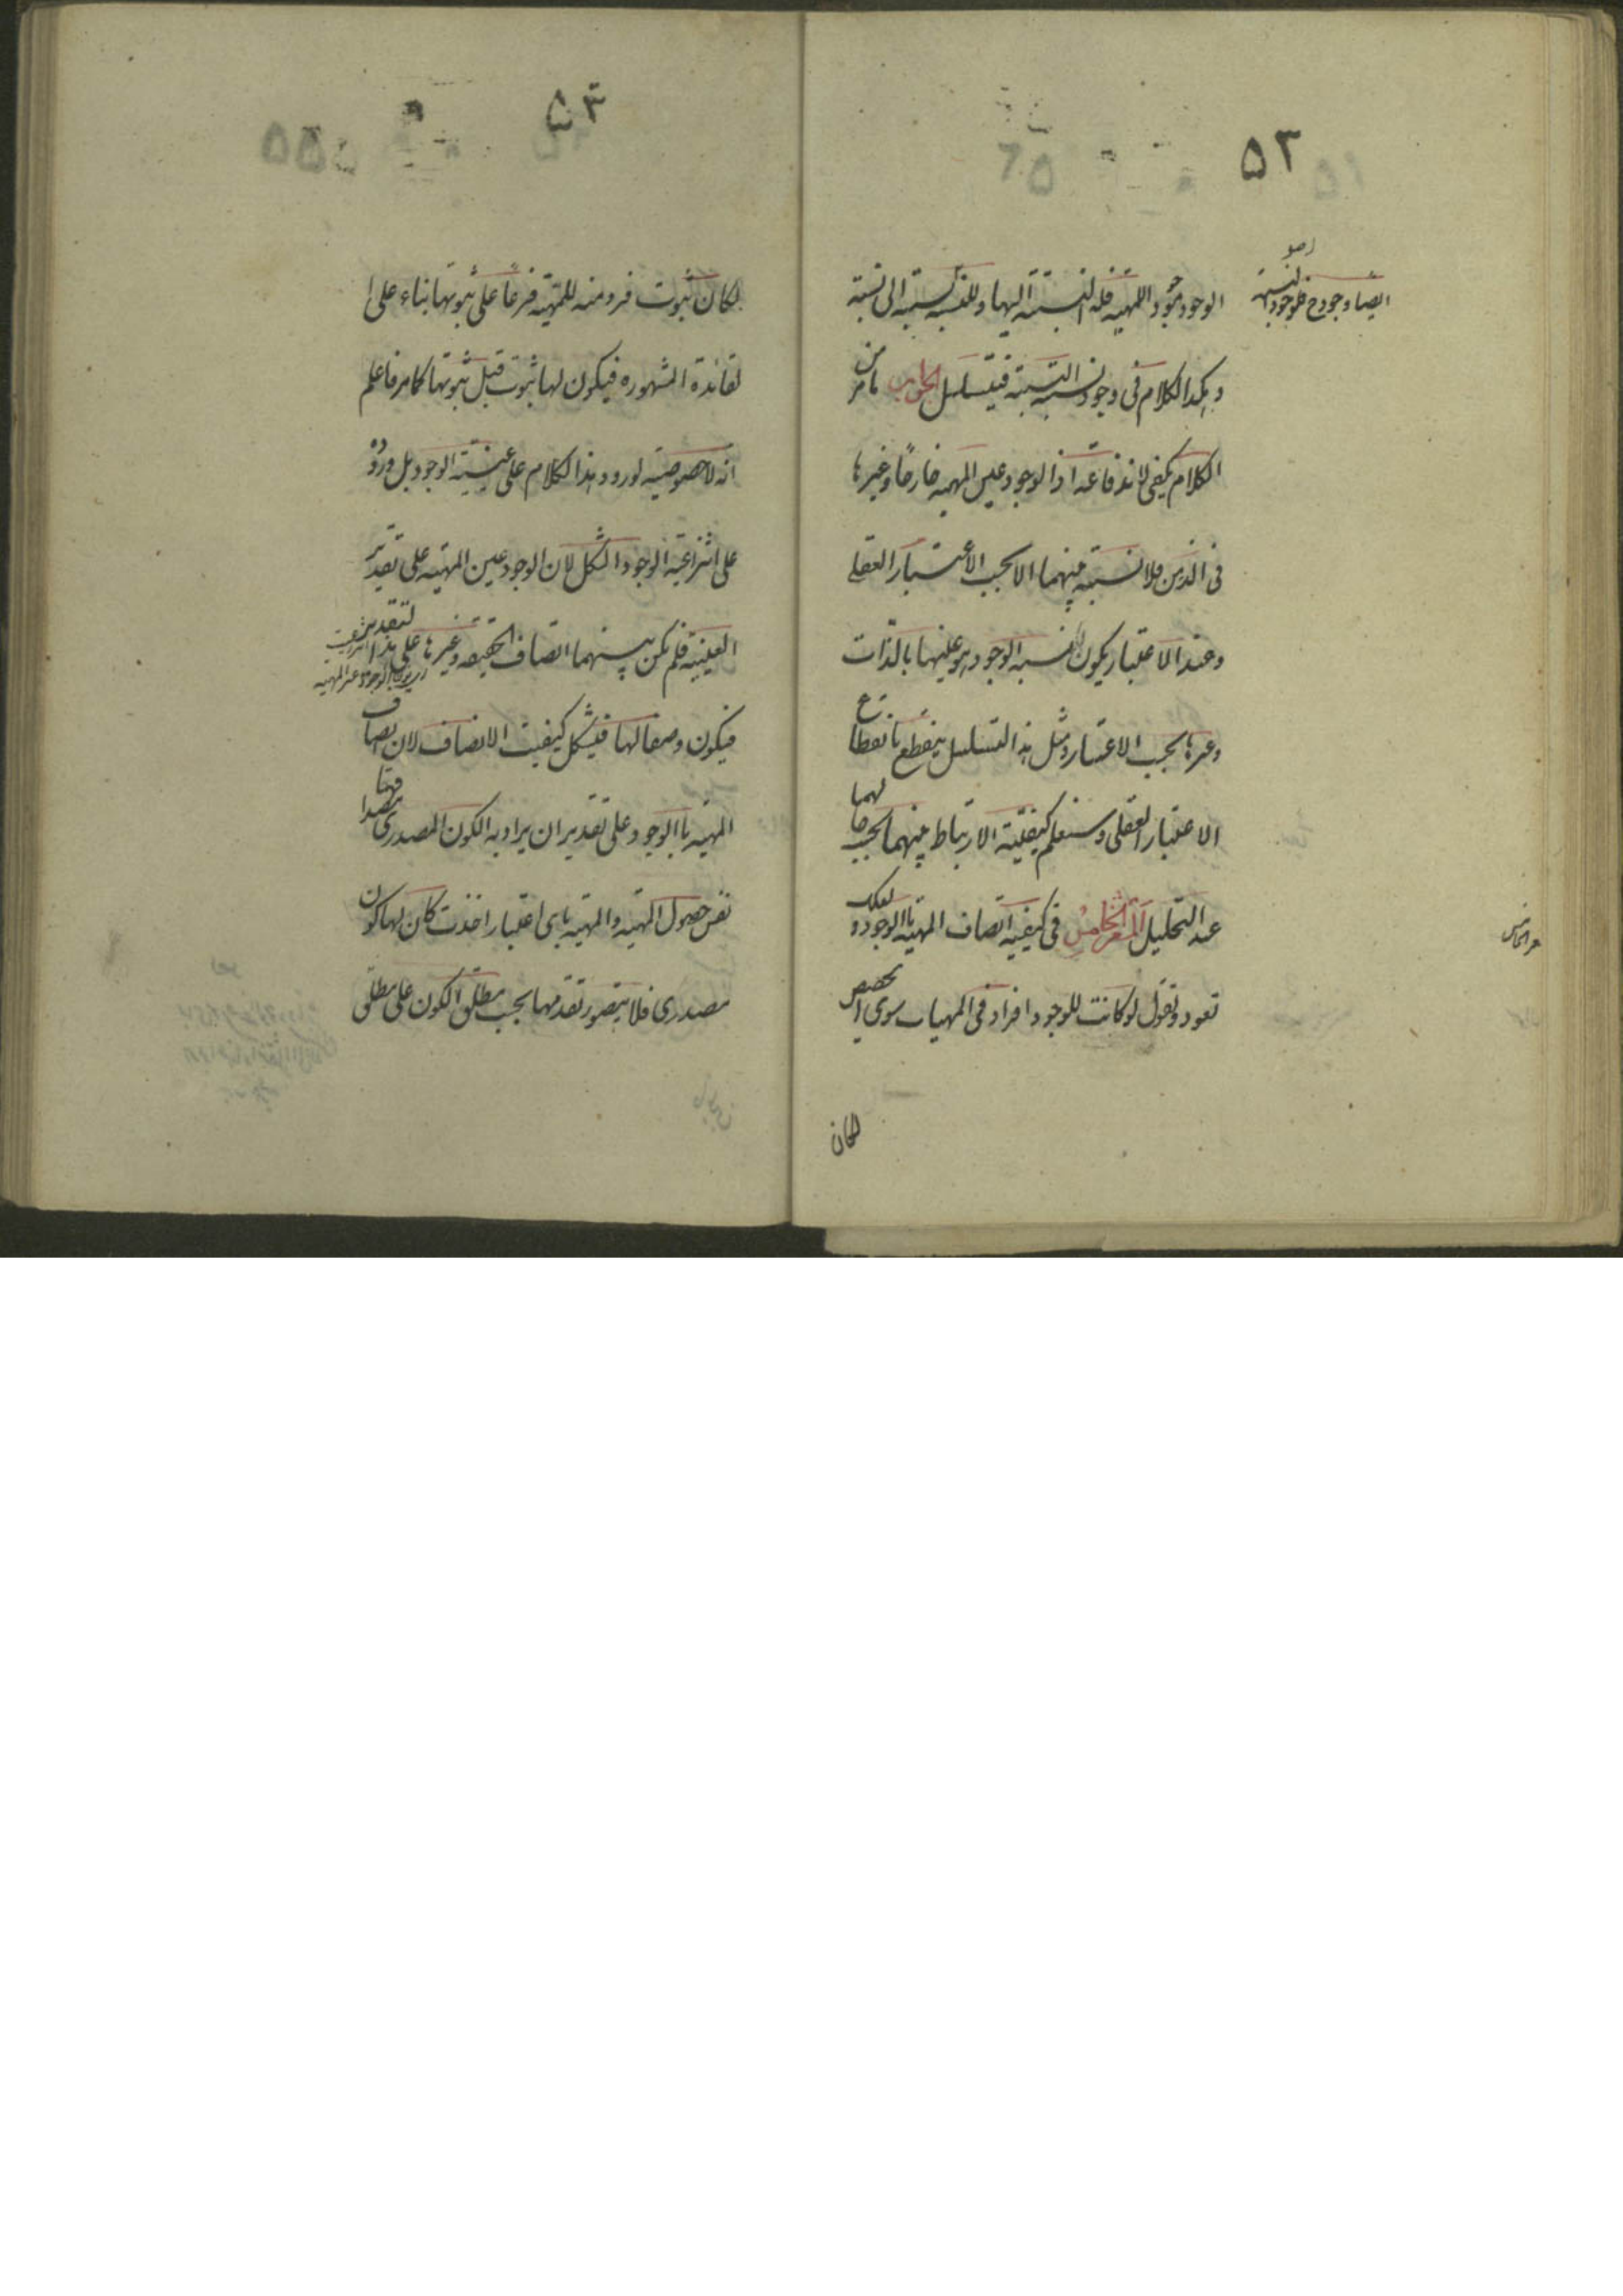 ٥٢
الوجود موجود للمهية فله النسبة اليها وللنسبة نسبة الى نسبة
ايضا وجود النسبة
وهكذا الكلام في وجود نسبة النسبة فيتسلسل الجواب ما مر من
الكلام يكفي لاندفاعه اذ الوجود عين المهية خارجا وغيرها
في الذهن فلا نسبة بينهما الا بحسب الاعتبار العقلي
وعند الاعتبار يكون لنسبة الوجود وهو عينها بالذات
وغيرها بحسب الاعتبار ومثل هذا التسلسل ينقطع بانقطاع
الاعتبار العقلي وستعلم كيفية الارتباط بينهما بحسب حالهما
عند التحليل المشعر الخامس في كيفية اتصاف المهية بالوجود و لعلك
تعود وتقول لو كانت للوجود افراد في المهيات سوى الحصص
لكان
٥٣
لكان ثبوت فرد منه للمهية فرعا على ثبوتها بناء على ا
لقائدة المشهوره فيكون لها ثبوت قبل ثبوتها كما مر فاعلم
انه لا خصوصية لورود هذا الكلام على عينية الوجود بل وروده
على انتزاعية الوجود اشكل لان الوجود عين المهية على تقدير
العينية فلم يكن بينهما اتصاف بالحقيقه وغيرها على هذا التقدير
فيكون وصفا لها فيشكل كيفيت الاتصاف لان اتصاف
المهية بالوجود على تقدير ان يراد به الكون المصدري مصداقها
نفس حصول المهية والمهية باى اعتبار اخذت كان لها كون
مصدرى فلا يتصور تقدمها بحسب مطلق الكون على مطلق